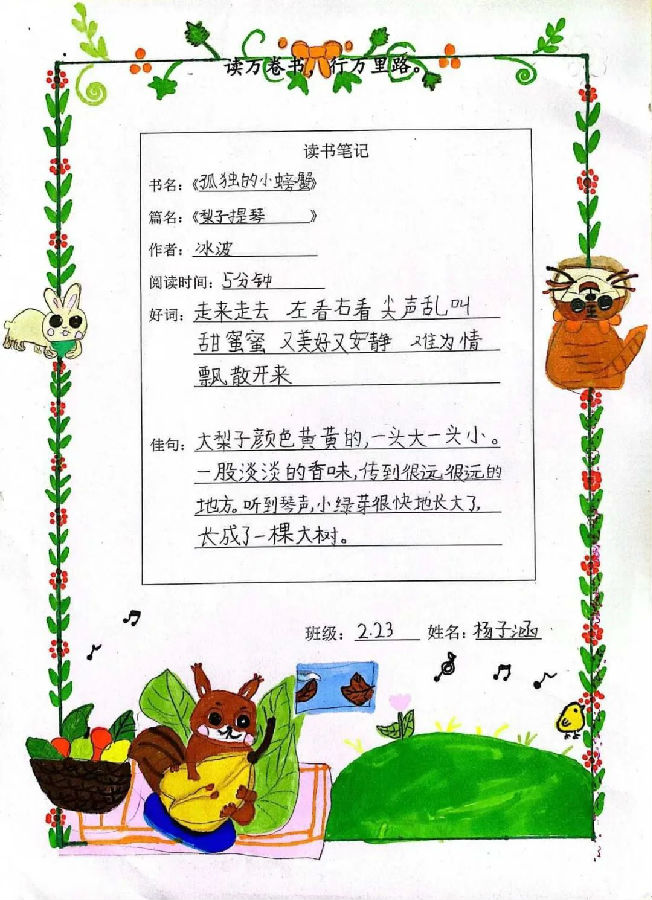 读万卷书，行万里路。
读书笔记
书名：《孤独的小螃蟹》
篇名：《梨子提琴》
作者：冰波
阅读时间：5分钟
好词：走来走去 左看右看 尖声乱叫
甜蜜蜜 又美好又安静 难为情
飘散开来
佳句：大梨子颜色黄黄的，一头大一头小。
一股淡淡的香味，传到很远很远的
地方。听到琴声，小绿芽很快地长大了，
长成了一棵大树。
班级：2.23 姓名：杨子涵